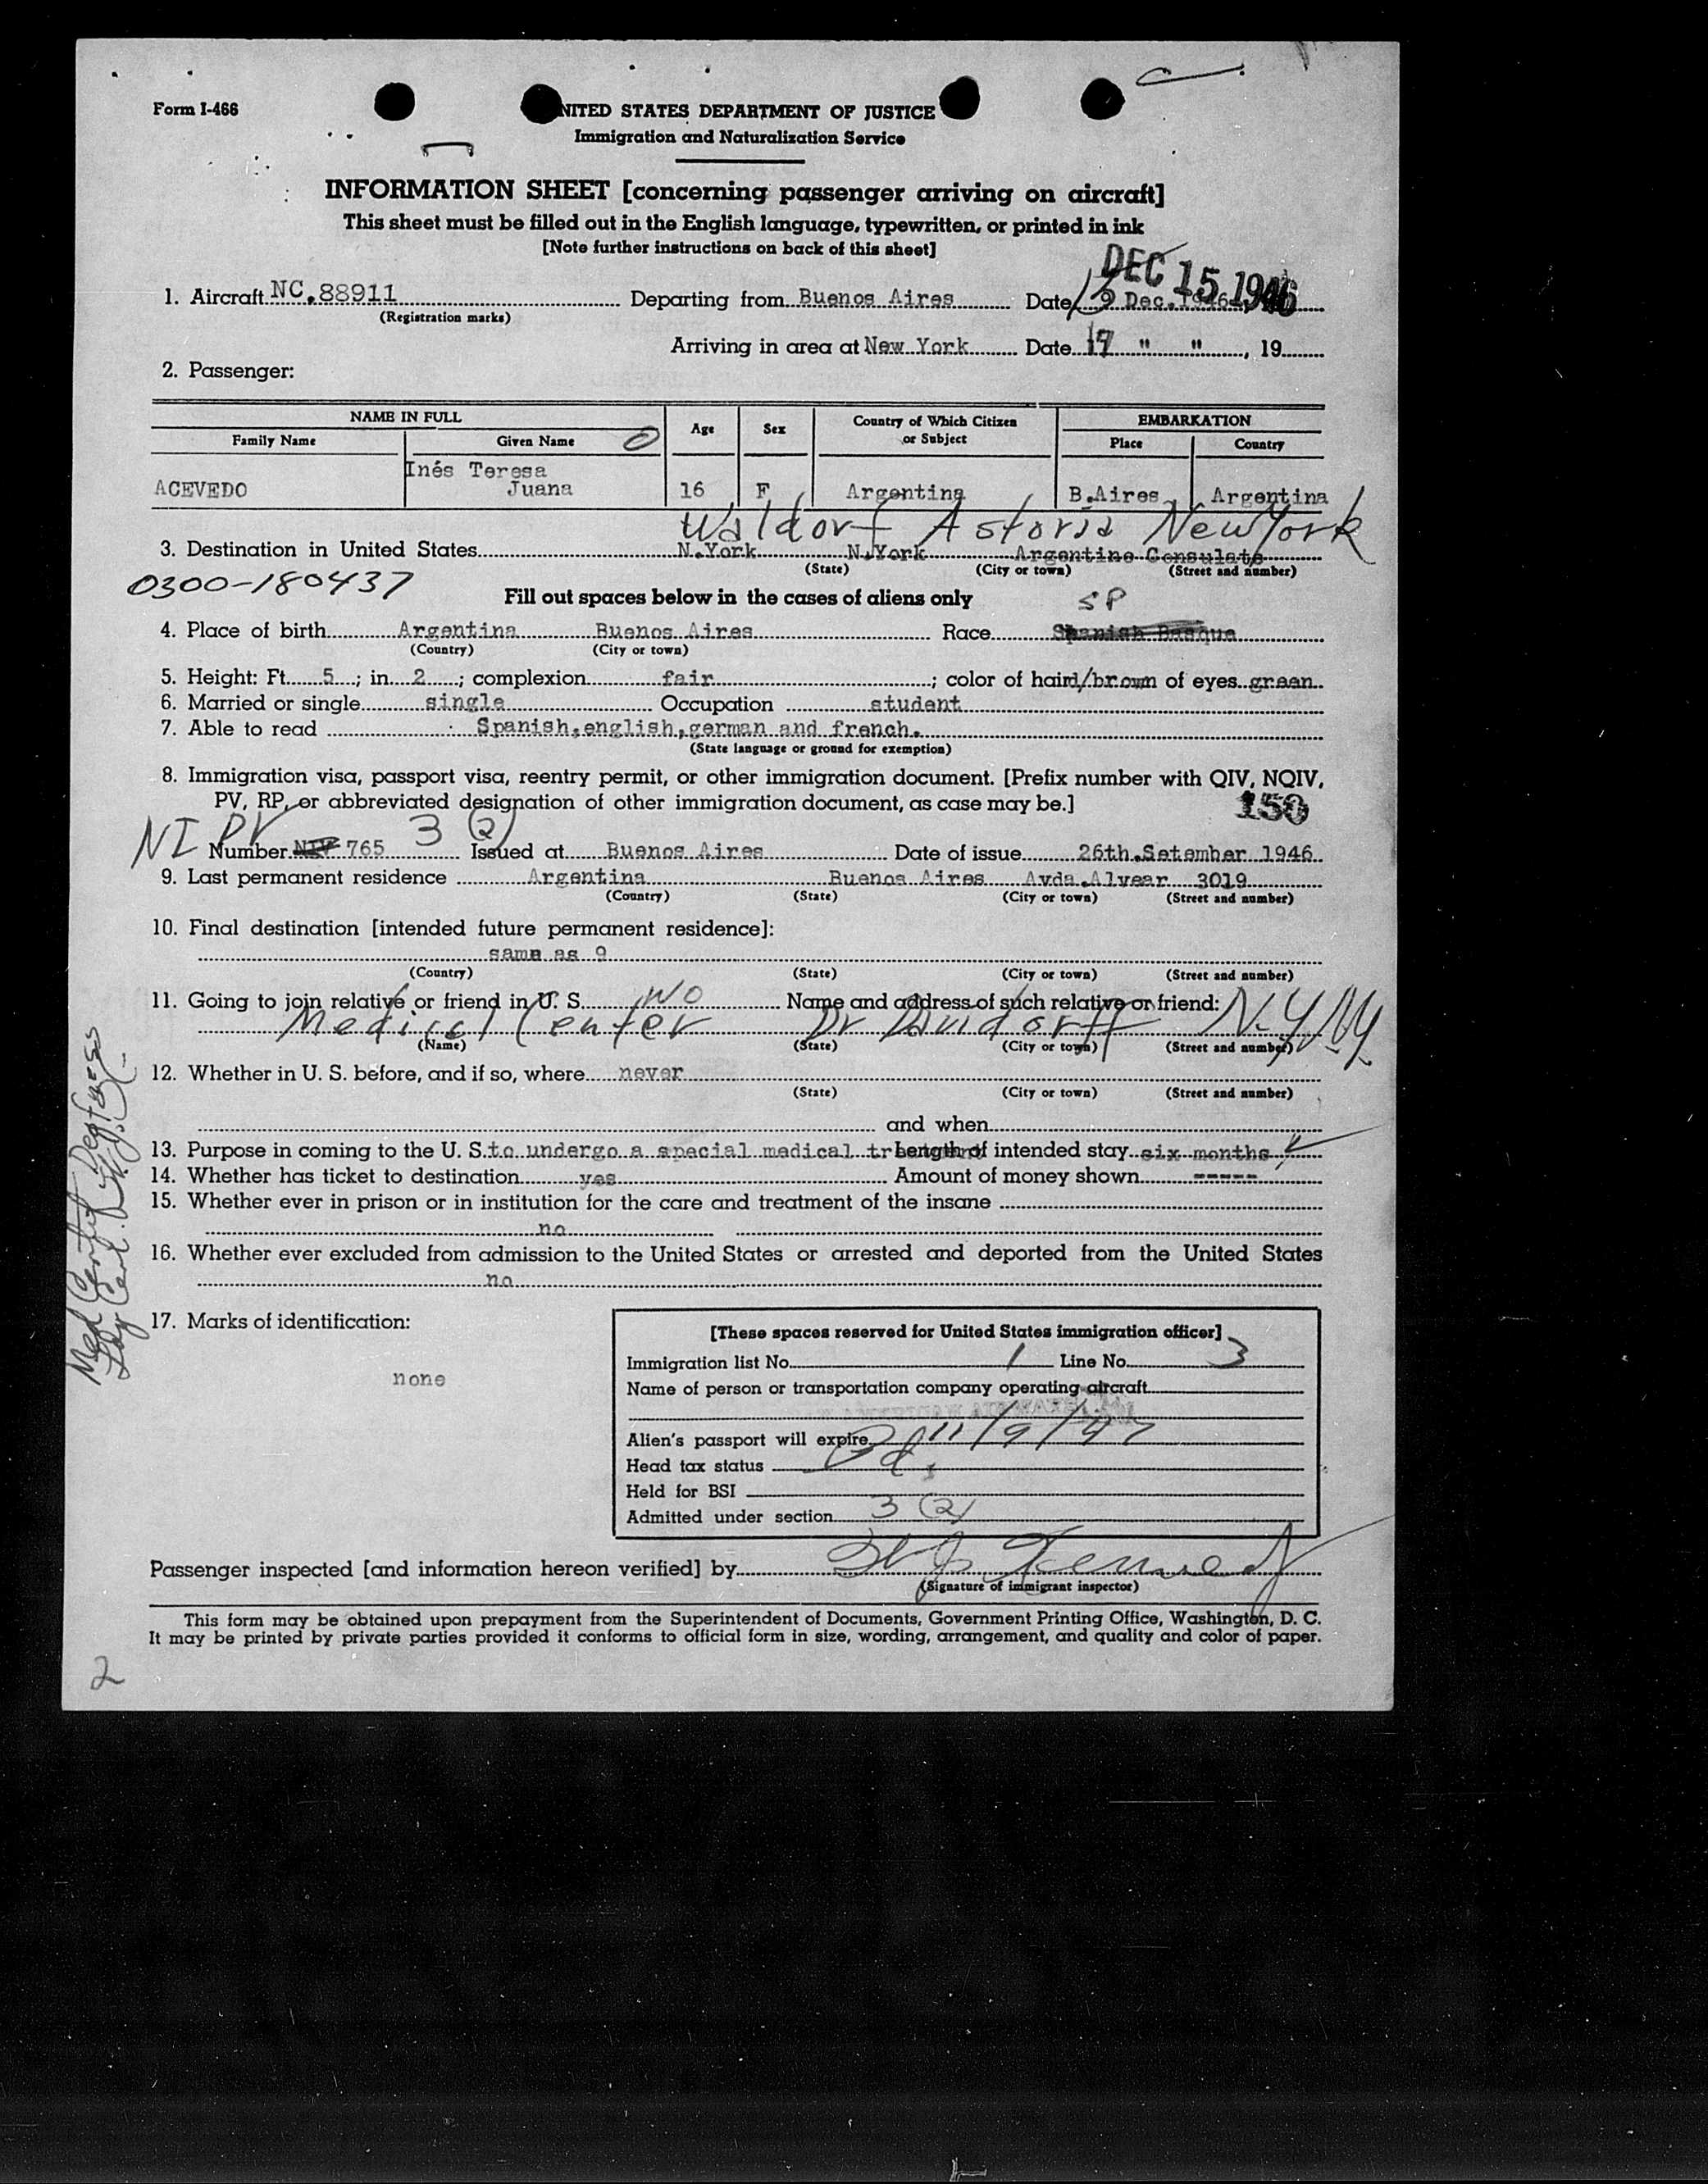 Form I-466
UNITED STATES DEPARTMENT OF JUSTICE
Immigration and Naturalization Service
INFORMATION SHEET [concerning passenger arriving on aircraft]
This sheet must be filled out in the English language, typewritten, or printed in ink
[Note further instructions on back of this sheet]
DEC 15 1946
1. Aircraft NC.88911 Departing from Buenos Aires Date 9 Dec. 1946
(Registration marks)
Arriving in area at New York Date 17 " ", 19
2. Passenger:
NAME IN FULL Age Sex Country of Which Citizen or Subject EMBARKATION
Family Name Given Name Place Country
Inés Teresa
ACEVEDO Juana 16 F Argentina B.Aires Argentina
Waldorf Astoria New York
3. Destination in United States N.York N.York Argentine Consulate
(State) (City or town) (Street and number)
0300-180437
Fill out spaces below in the cases of aliens only
SP
4. Place of birth Argentina Buenos Aires Race Spanish Basque
(Country) (City or town)
5. Height: Ft. 5; in. 2; complexion fair; color of hair d/brown of eyes green
6. Married or single single Occupation student
7. Able to read Spanish,english,german and french.
(State language or ground for exemption)
8. Immigration visa, passport visa, reentry permit, or other immigration document. [Prefix number with QIV, NQIV,
PV, RP, or abbreviated designation of other immigration document, as case may be.] 150
NI PV 3 (2)
Number NIV 765 Issued at Buenos Aires Date of issue 26th.Setember 1946
9. Last permanent residence Argentina Buenos Aires Avda.Alvear 3019
(Country) (State) (City or town) (Street and number)
10. Final destination [intended future permanent residence]:
same as 9
(Country) (State) (City or town) (Street and number)
11. Going to join relative or friend in U. S. NO Name and address of such relative or friend:
Medical Center Dr Davidorff N.Y. N.Y.
(Name) (State) (City or town) (Street and number)
12. Whether in U. S. before, and if so, where never
(State) (City or town) (Street and number)
and when
13. Purpose in coming to the U. S. to undergo a special medical treatment Length of intended stay six months
14. Whether has ticket to destination yes Amount of money shown -----
15. Whether ever in prison or in institution for the care and treatment of the insane
no
16. Whether ever excluded from admission to the United States or arrested and deported from the United States
no
17. Marks of identification:
none
[These spaces reserved for United States immigration officer]
Immigration list No. 1 Line No. 3
Name of person or transportation company operating aircraft
Alien's passport will expire 11/9/47
Head tax status
Held for BSI
Admitted under section 3 (2)
Passenger inspected [and information hereon verified] by Kennedy
(Signature of immigrant inspector)
This form may be obtained upon prepayment from the Superintendent of Documents, Government Printing Office, Washington, D. C.
It may be printed by private parties provided it conforms to official form in size, wording, arrangement, and quality and color of paper.
2
Med Certif